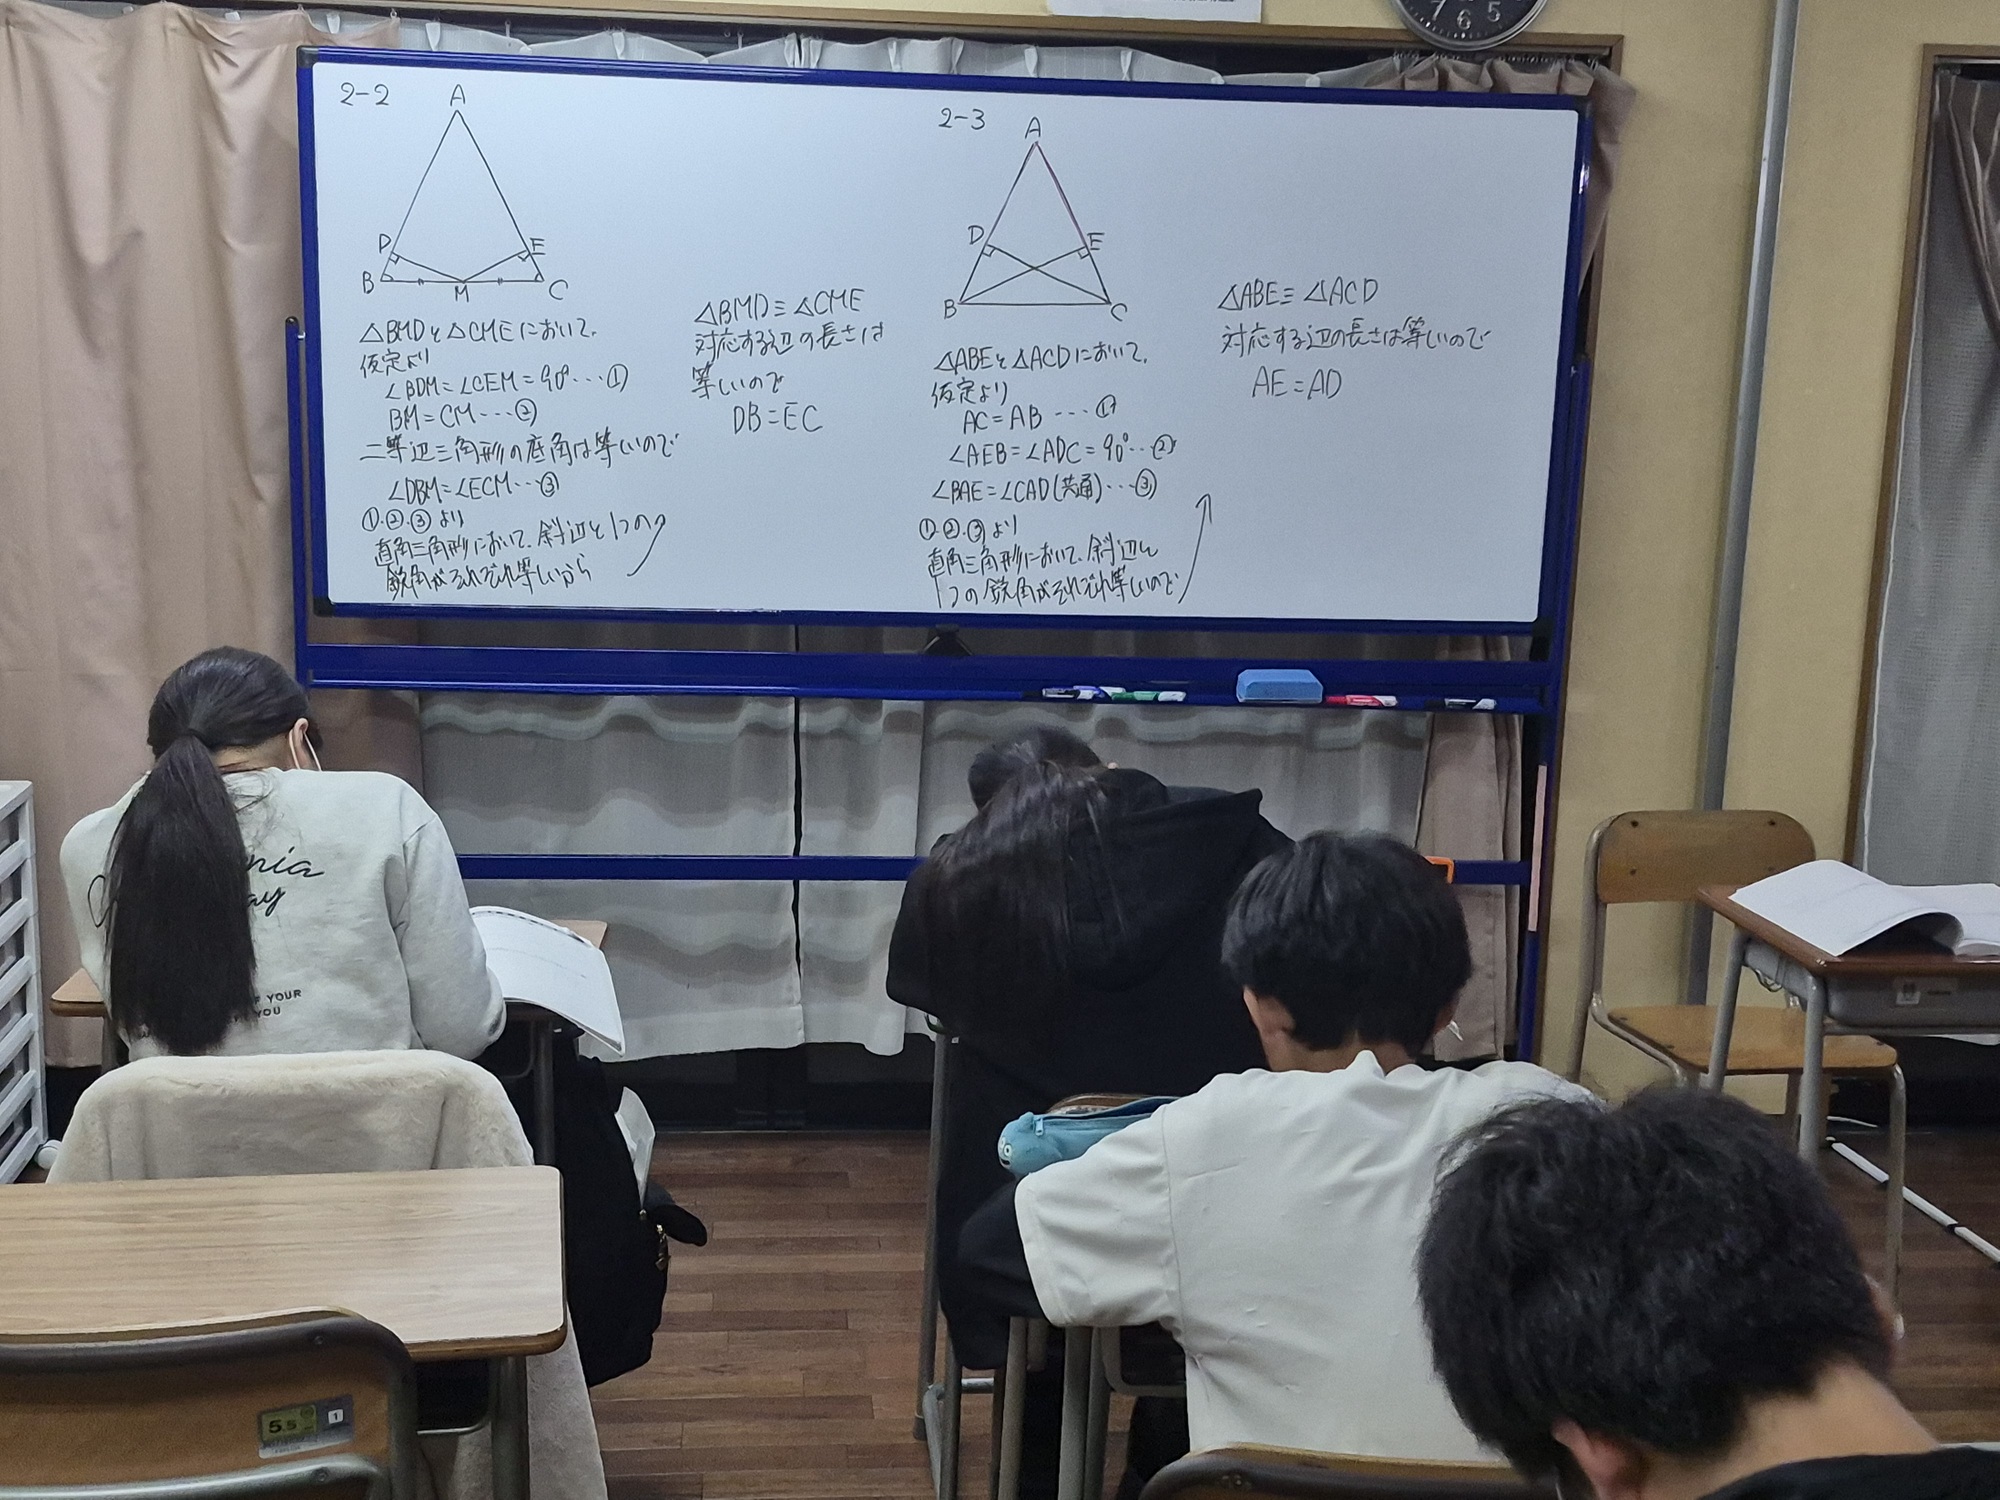 2-2
A
D
E
B
M
C
△BMDと△CMEにおいて、
仮定より
∠BDM=∠CEM=90°…①
BM=CM…②
二等辺三角形の底角は等しいので
∠DBM=∠ECM…③
①.②.③より
直角三角形において、斜辺と1つの
鋭角がそれぞれ等しいから
△BMD≡△CME
対応する辺の長さは
等しいので
DB=EC
2-3
A
D
E
B
C
△ABEと△ACDにおいて、
仮定より
AC=AB…①
∠AEB=∠ADC=90°…②
∠BAE=∠CAD(共通)…③
①.②.③より
直角三角形において、斜辺と
1つの鋭角がそれぞれ等しいので
△ABE≡△ACD
対応する辺の長さは等しいので
AE=AD
7 6 5
nia
ay
F YOUR
YOU
5.5
1